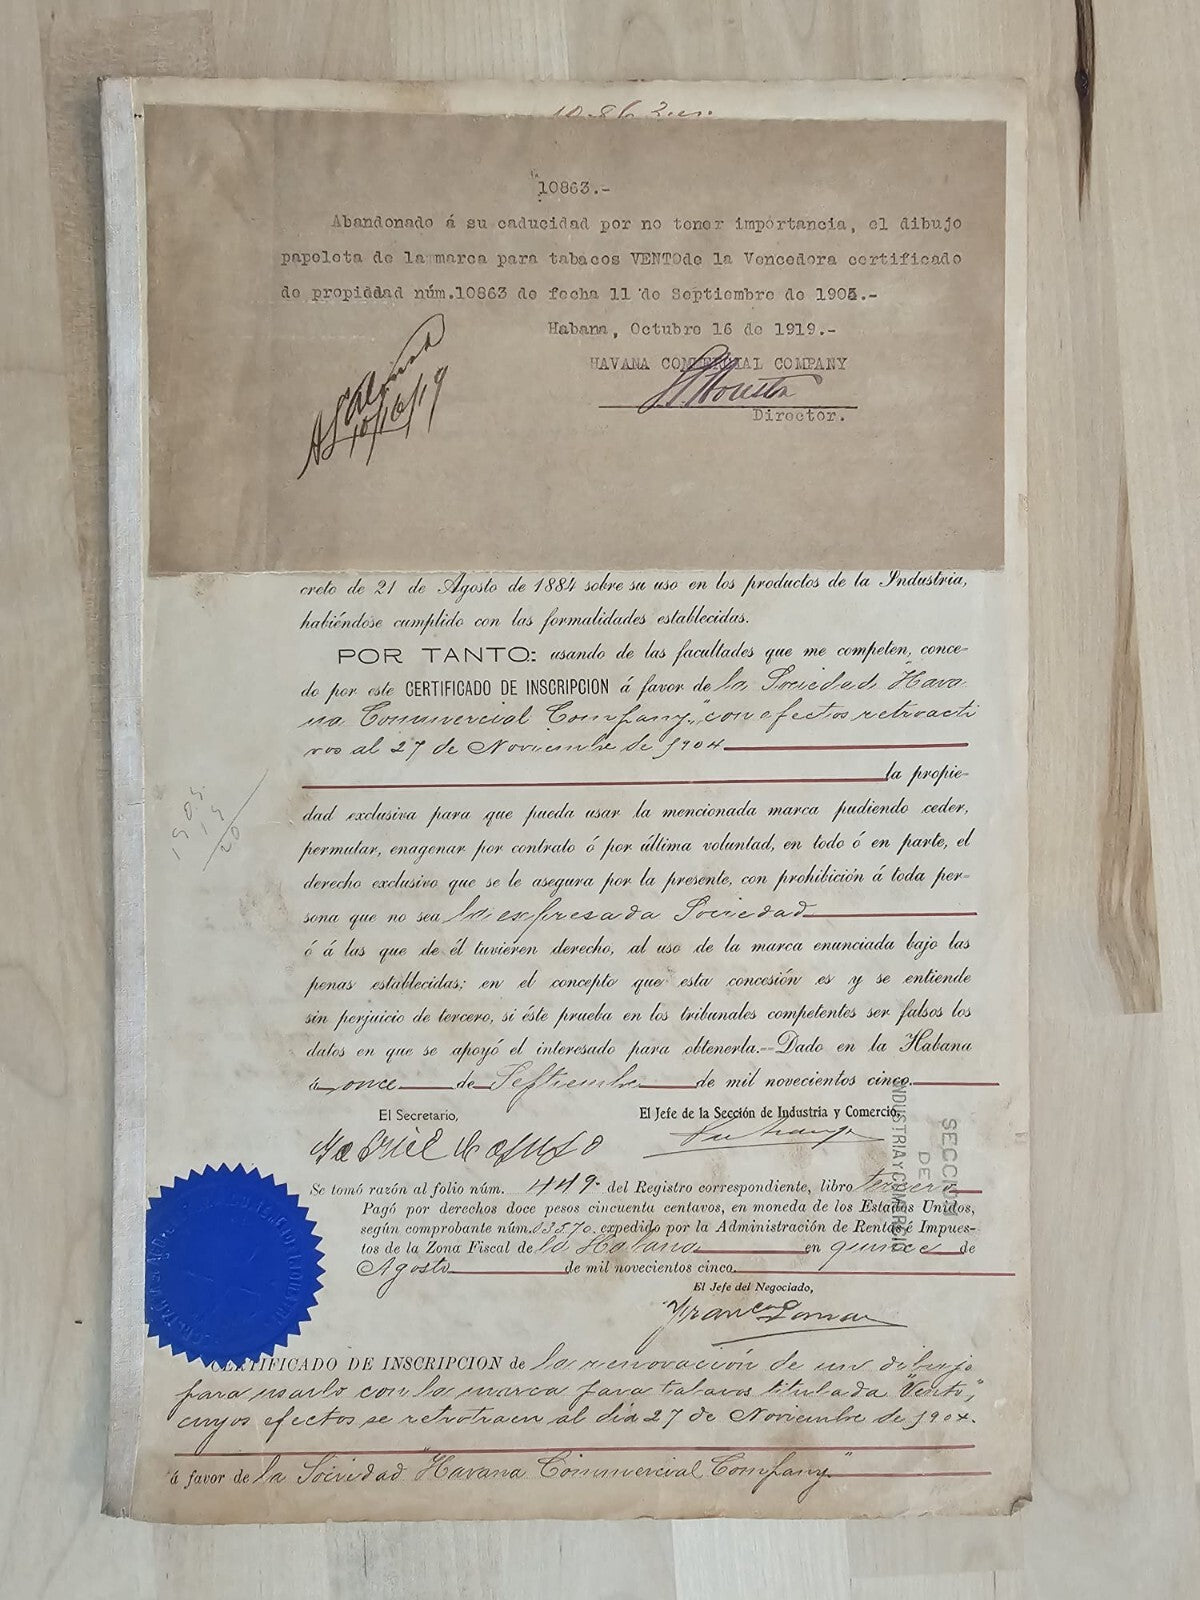 10863.-
Abandonado á su caducidad por no tener importancia, el dibujo
papeleta de la marca para tabacos VENTOde la Vencedora certificado
de propiedad núm.10863 de fecha 11 de Septiembre de 1905.-
Habana, Octubre 16 de 1919.-
HAVANA COMMERCIAL COMPANY
Director.
10/16/19
creto de 21 de Agosto de 1884 sobre su uso en los productos de la Industria,
habiéndose cumplido con las formalidades establecidas.
POR TANTO: usando de las facultades que me competen, conce-
do por este CERTIFICADO DE INSCRIPCION á favor de la Sociedad "Hava-
na Commercial Company", con efectos retroacti
vos al 27 de Noviembre de 1904
la propie-
dad exclusiva para que pueda usar la mencionada marca pudiendo ceder,
permutar, enagenar por contrato ó por última voluntad, en todo ó en parte, el
derecho exclusivo que se le asegura por la presente, con prohibición á toda per-
sona que no sea la expresada Sociedad
ó á las que de él tuvieren derecho, al uso de la marca enunciada bajo las
penas establecidas; en el concepto que esta concesión es y se entiende
sin perjuicio de tercero, si éste prueba en los tribunales competentes ser falsos los
datos en que se apoyó el interesado para obtenerla.--Dado en la Habana
á once de Septiembre de mil novecientos cinco.
El Secretario,
El Jefe de la Sección de Industria y Comercio,
SECCION
DE
INDUSTRIA Y COMERCIO
Se tomó razón al folio núm. 449 del Registro correspondiente, libro tercero
Pagó por derechos doce pesos cincuenta centavos, en moneda de los Estados Unidos,
según comprobante núm. 03570 expedido por la Administración de Rentas é Impues-
tos de la Zona Fiscal de la Habana en quince de
Agosto de mil novecientos cinco.
El Jefe del Negociado,
CERTIFICADO DE INSCRIPCION de la renovación de un dibujo
para usarlo con la marca para tabacos titulada "Vento",
cuyos efectos se retrotraen al día 27 de Noviembre de 1904.
á favor de la Sociedad "Havana Commercial Company"